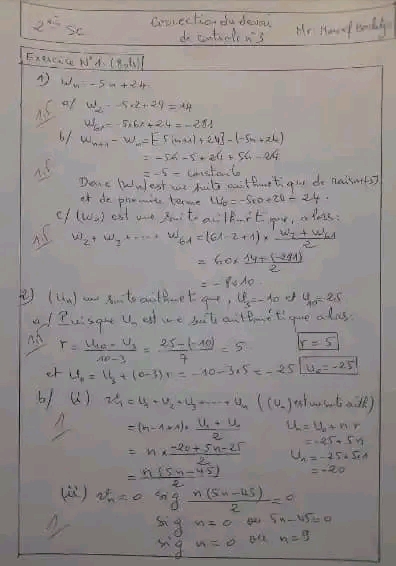 2ème Sc
Correction du devoir
de contrôle n°3
Mr: Moncef
Exercice N°1: (8pts)
1) Wn = -5n + 24.
a/ W2 = -5×2+24 = 14
1,5
W61 = -5×61+24 = -281
b/ Wn+1 - Wn = [-5(n+1)+24] - (-5n+24)
= -5n-5+24+5n-24
1,5
= -5 = constante
Donc (Wn) est une suite arithmétique de raison (-5)
et de premier terme W0 = -5×0+24 = 24.
c/ (Wn) est une suite arithmétique, alors:
1,5
W2 + W3 + ... + W61 = (61-2+1) × (W2 + W61)/2
= 60 × (14+(-281))/2
= -8010.
2) (Un) une suite arithmétique, U3 = -10 et U10 = 25
a/ Puisque Un est une suite arithmétique alors:
r = (U10 - U3)/(10-3) = (25-(-10))/7 = 5 r = 5
et U0 = U3 + (0-3)r = -10-3×5 = -25 U0 = -25
b/ (i) vn = U1 + U2 + U3 + ... + Un ((Un) est une suite arith)
1
= (n-1+1) × (U1 + Un)/2 Un = U0 + nr
= -25+5n
= n × (-20+5n-25)/2 U1 = -25+5×1
= -20
= n(5n-45)/2
(ii) vn = 0 sig n(5n-45)/2 = 0
1
sig n = 0 ou 5n-45 = 0
sig n = 0 ou n = 9